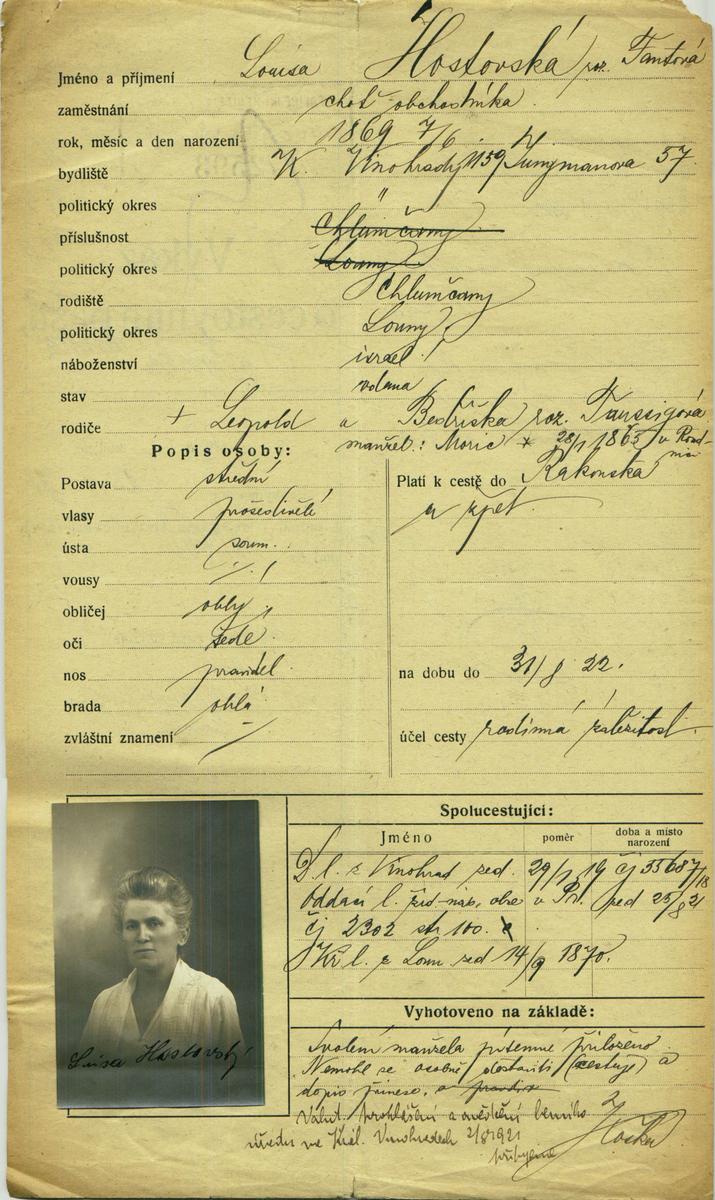 Jméno a příjmení Louisa Hostovská roz. Fantová
zaměstnání choť obchodníka
rok, měsíc a den narození 1869 7/6
bydliště K. Vinohrady 1159 Jungmanova 57
politický okres "
příslušnost Chlumčany
politický okres Louny
rodiště Chlumčany
politický okres Louny
náboženství israel.
stav vdana
rodiče + Leopold a Bedřiška roz. Taussigová
manžel: Moric * 28/1 1865 v
Popis osoby:
Postava střední
Platí k cestě do Rakouska
vlasy prošedivělé
a zpět
ústa soum.
vousy /
obličej oblý
oči šedé
nos pravidel.
na dobu do 31/8 22.
brada oblá
zvláštní znamení /
účel cesty rodinná záležitost
Spolucestující:
Jméno poměr doba a místo narození
D. l. z Vinohrad zed. 29/1 19 čj 35687/18
Oddací l. žid. náb. obce v Pr. zed 25/8 21
čj 2302 str 100.
Kř l. z Loun zed 14/9 1870.
Vyhotoveno na základě:
Svolení manžela písemné přiloženo
Nemohl se osobně dostaviti (cestuje) a
dopis přinesl.
Luisa Hostovský
Valut. prohlášení a berního
úřadu na Král. Vinohradech 2/8 1921